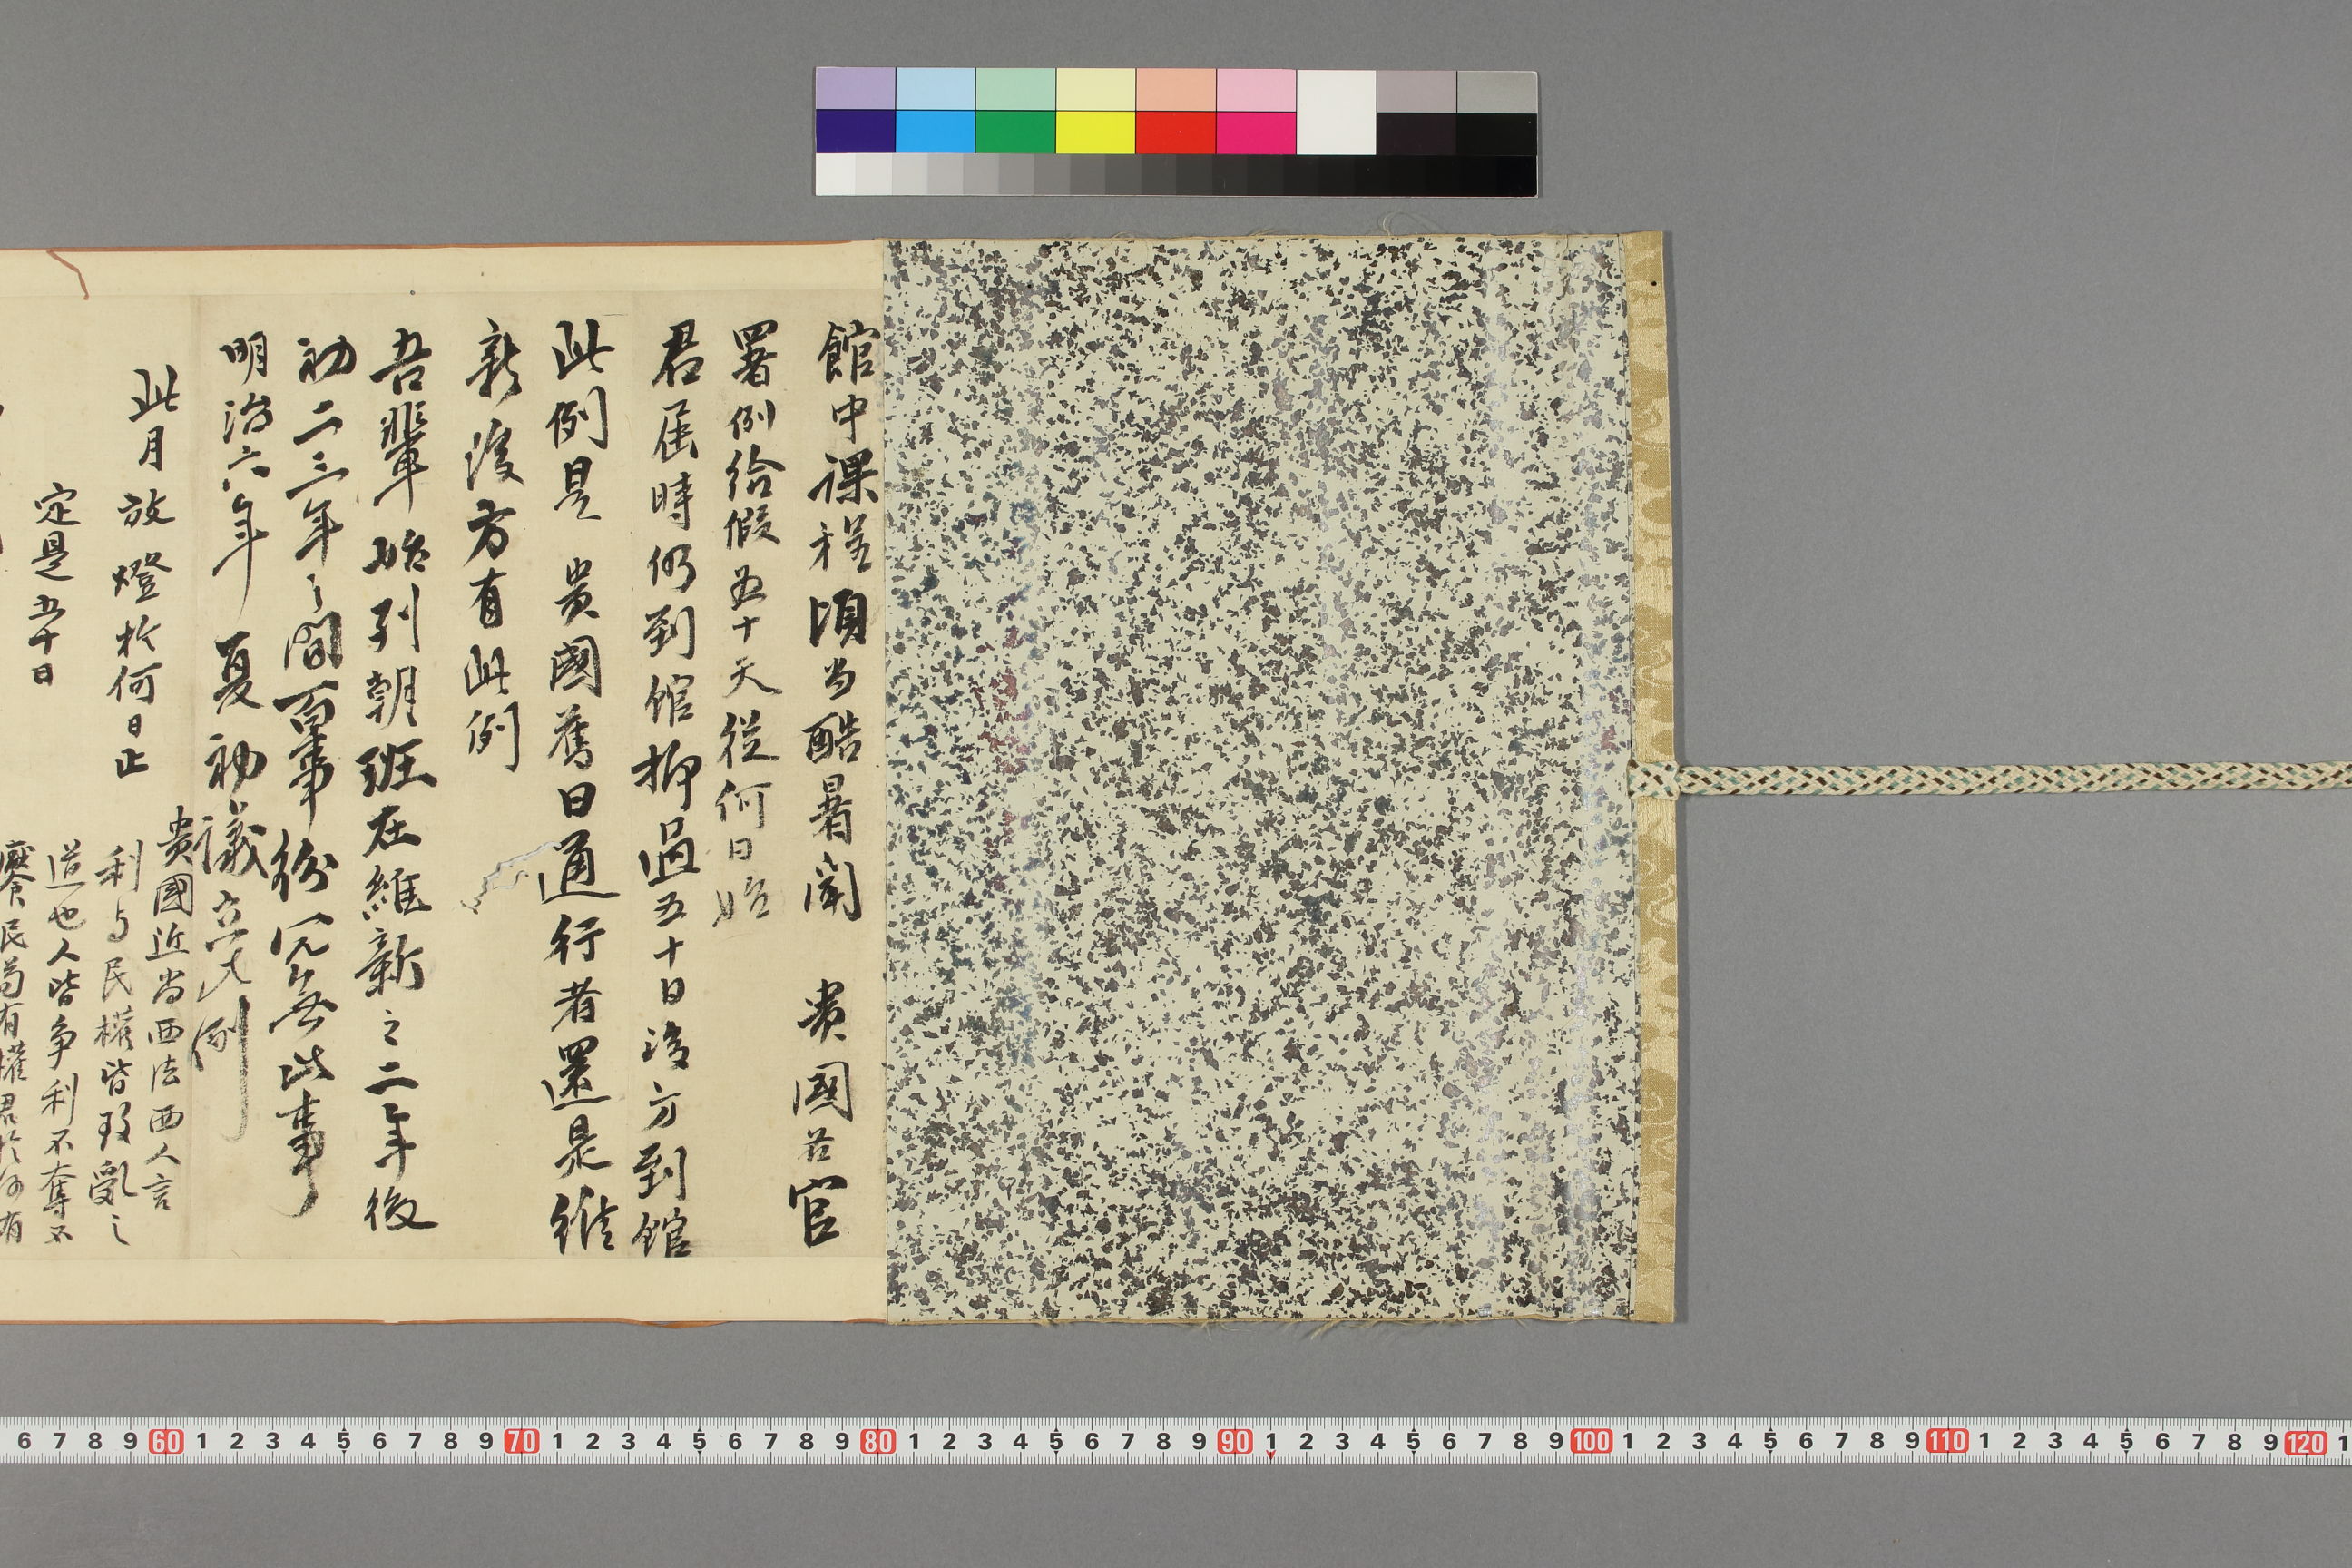 館中課程頃当酷暑聞　貴國各官
署例給假五十天従何日始
君届時仍到館抑過五十日後方到館
此例是　貴國舊日通行者還是維
新後方有此例
吾輩始列朝班在維新之二年後
初二三年之間百事紛冗無此事
明治六年　夏初議立此例
此月放燈於何日止
定是五十日
貴國近尚西法西人言
利与民權皆致亂之
道也人皆争利不奪不
饜民苟有權君於何有
6 7 8 9 60 1 2 3 4 5 6 7 8 9 70 1 2 3 4 5 6 7 8 9 80 1 2 3 4 5 6 7 8 9 90 1 2 3 4 5 6 7 8 9 100 1 2 3 4 5 6 7 8 9 110 1 2 3 4 5 6 7 8 9 120 1